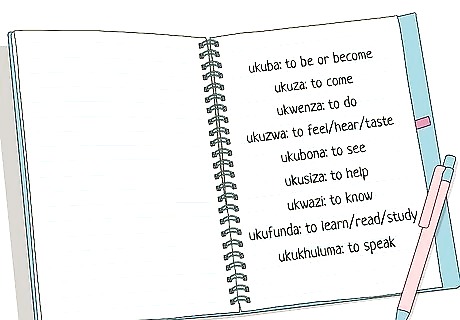 ukuba: to be or become
ukuza: to come
ukwenza: to do
ukuzwa: to feel/hear/taste
ukubona: to see
ukusiza: to help
ukwazi: to know
ukufunda: to learn/read/study
ukukhuluma: to speak